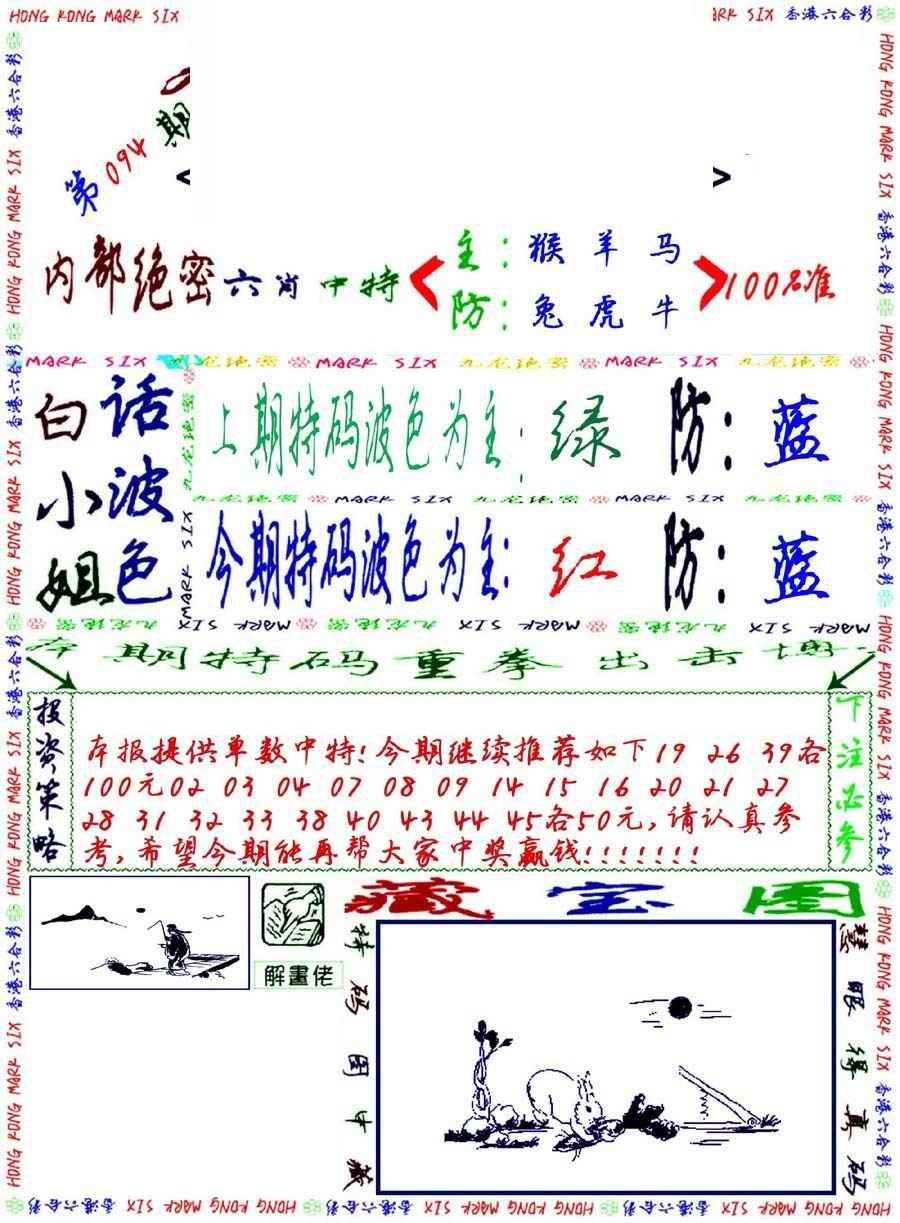 HONG KONG MARK SIX
ARK SIX 香港六合彩
第094期
< >
内部绝密六肖中特
主：猴羊马
防：兔虎牛
100%准
MARK SIX 九龙绝密 MARK SIX 九龙绝密 MARK SIX 九龙绝密
白话
小波
姐色
上期特码波色为主：绿 防：蓝
九龙绝密 MARK SIX 九龙绝密 MARK SIX 九龙绝密
今期特码波色为主：红 防：蓝
九龙绝密 XIS MARK 九龙绝密 XIS MARK 九龙绝密 XIS MARK
本期特码重拳出击
投资策略
本报提供单数中特！今期继续推荐如下19 26 39各
100元02 03 04 07 08 09 14 15 16 20 21 27
28 31 32 33 38 40 43 44 45各50元，请认真参
考，希望今期能再帮大家中奖赢钱！！！！！！！
下注必参
解畫佬
藏宝图
特码图中藏
慧眼得真码
HONG KONG MARK SIX 香港六合彩